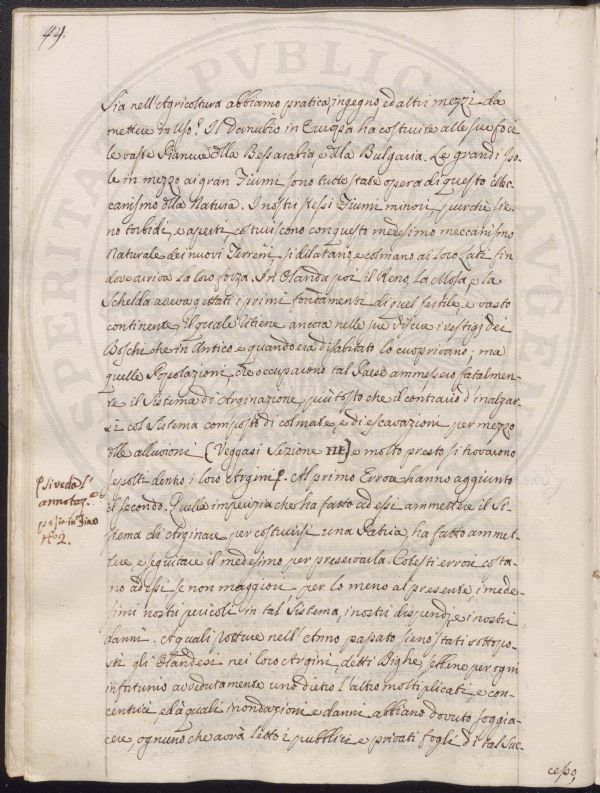 44.
sia nell'Agricoltura abbiamo pratica, ingegno, ed altri mezzi da
mettere in uso? Il Danubio in Europa ha costruite alle sue foci
le vaste Pianure della Bessarabia, e dlla Bulgaria. Le grandi Iso-
le in mezzo ai gran Fiumi sono tutte state opera di questo Mec-
canismo dlla Natura. I nostri stessi Fiumi minori, purchè sie-
no torbidi, e aperti costruiscono con questo medesimo meccanismo
Naturale dei nuovi Terreni, si dilatano, e colmano ai loro Lati fin
dove arriva la loro forza. In Olanda poi il Reno, La Mosa, e la
Schelda aveva gettati i primi fondamenti di quel fertile, e vasto
continente, il quale ritiene ancora nelle sue viscere i vestigj dei
Boschi che in Antico e quando era disabitato lo cuoprivano; ma
quelle Popolazioni, che occupavono tal Paese ammessero fatalmen-
te il Sistema di Arginazione, più tosto che il contrario d'inalzar-
si col Sistema composto di colmate, e di escavazioni per mezzo
dlle alluvioni (Veggasi Sezione III.) e molto presto si trovarono
sepolti dentro i loro Argini. Al primo Errore hanno aggiunto
il secondo. Quella imperizia che ha fatto ad essi ammettere il Si-
stema di Arginare per costruirsi una Patria, ha fatto ammet-
tere, e seguitare il medesimo per preservarla. Cotesti errori costa-
no ad essi se non maggiori per lo meno al presente, i mede-
simi nostri pericoli in tal Sistema, i nostri dispendj, e i nostri
danni. A quali rotture nell'Anno passato sieno stati sottopo-
sti gli Olandesi nei loro Argini detti Dighe, sebbene per ogni
infortunio avvedutamente uno dietro l'altro moltiplicati, e con-
centrici, ed a quali inondazioni e danni abbiano dovuto soggia-
cere, ognuno che avrà letto i pubblici e privati fogli di tal suc-
cesso,
si veda l'
annotaz.e
posta in fine
N.o 2.